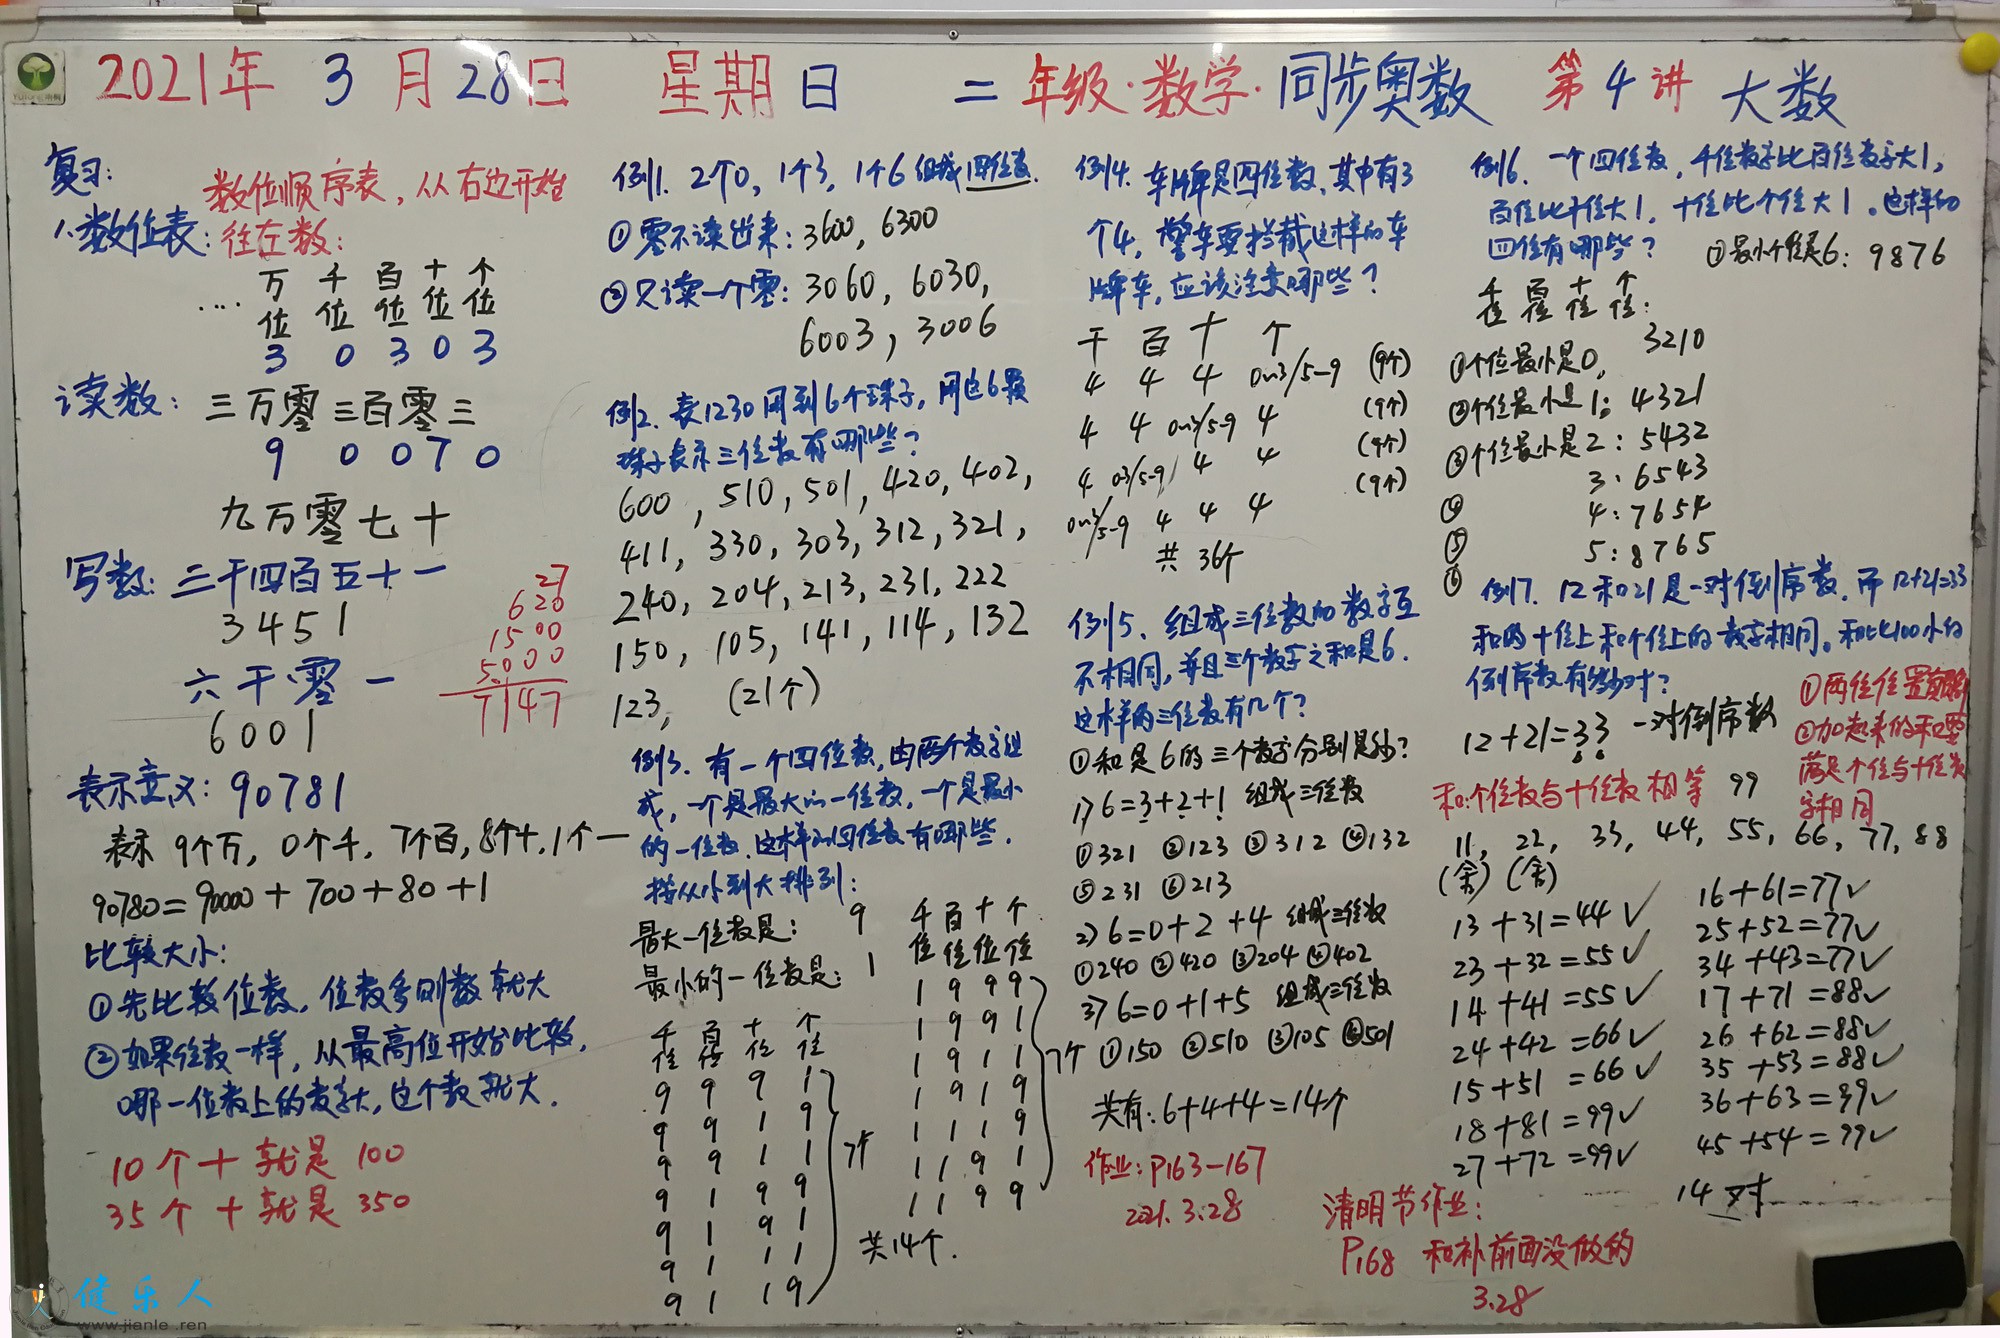 2021年 3月28日 星期日 二年级·数学·同步奥数 第4讲 大数
复习:
数位顺序表,从右边开始
1.数位表:往左数:
万 千 百 十 个
…. 位 位 位 位 位
3 0 3 0 3
读数: 三万零三百零三
9 0 0 7 0
九万零七十
写数: 三千四百五十一
3451
六千零一
6001
27
620
1500
5000
7147
表示意义: 90781
表示 9个万, 0个千, 7个百, 8个十, 1个一
90780=90000+700+80+1
比较大小:
①先比数位数, 位数多则数就大
②如果位数一样, 从最高位开始比较,
哪一位数上的数字大, 这个数就大.
10个十就是100
35个十就是350
例1. 2个0, 1个3, 1个6 组成四位数.
①零不读出来: 3600, 6300
②只读一个零: 3060, 6030,
6003, 3006
例2. 表1230用到6个珠子, 用这6颗
珠子表示三位数有哪些?
600, 510, 501, 420, 402,
411, 330, 303, 312, 321,
240, 204, 213, 231, 222
150, 105, 141, 114, 132
123, (21个)
例3. 有一个四位数, 由两个数字组
成, 一个是最大的一位数, 一个是最小
的一位数. 这样的四位数有哪些.
按从小到大排列:
最大一位数是: 9
最小的一位数是: 1
千 百 十 个
位 位 位 位
9 9 9 1
9 9 1 9
9 9 1 1
9 1 9 9
9 1 9 1
9 1 1 1
9 1 1 9
7个
千 百 十 个
位 位 位 位
1 9 9 9
1 9 9 1
1 9 1 1
1 9 1 9
1 1 1 9
1 1 9 1
1 1 9 9
7个
共14个.
例4. 车牌是四位数, 其中有3
个4, 警车要拦截这样的车
牌车, 应该注意哪些?
千 百 十 个
4 4 4 0~3/5-9 (9个)
4 4 0~3/5-9 4 (9个)
4 03/5-9 4 4 (9个)
0~3/5-9 4 4 4 (9个)
共 36个
例5. 组成三位数的数字互
不相同, 并且三个数字之和是6.
这样的三位数有几个?
①和是6的三个数字分别是多少?
1) 6=3+2+1 组成三位数
①321 ②123 ③312 ④132
⑤231 ⑥213
2) 6=0+2+4 组成三位数
①240 ②420 ③204 ④402
3) 6=0+1+5 组成三位数
①150 ②510 ③105 ④501
共有: 6+4+4=14个
作业: P163-167
2021. 3.28
例6. 一个四位数, 千位数字比百位数字大1,
百位比十位大1, 十位比个位大1. 这样的
四位有哪些? ⑦最小个位是6: 9876
千 百 十 个
位 位 位 位:
①个位最小是0, 3210
②个位最小是1: 4321
③个位最小是2: 5432
④ 3: 6543
⑤ 4: 7654
⑥ 5: 8765
例7. 12和21是一对倒序数, 而12+21=33
和的十位上和个位上的数字相同。和比100小的
倒序数有多少对?
12+21=33 一对倒序数
①两位位置颠倒
②加起来的和要
满足个位与十位数
字相同
和:个位数与十位数相等 99
11, 22, 33, 44, 55, 66, 77, 88
(舍) (舍)
13+31=44✓
23+32=55✓
14+41=55✓
24+42=66✓
15+51=66✓
18+81=99✓
27+72=99✓
16+61=77✓
25+52=77✓
34+43=77✓
17+71=88✓
26+62=88✓
35+53=88✓
36+63=99✓
45+54=99✓
14对
清明节作业:
P168 和补前面没做的
3.28
健乐人
www.jianle.ren